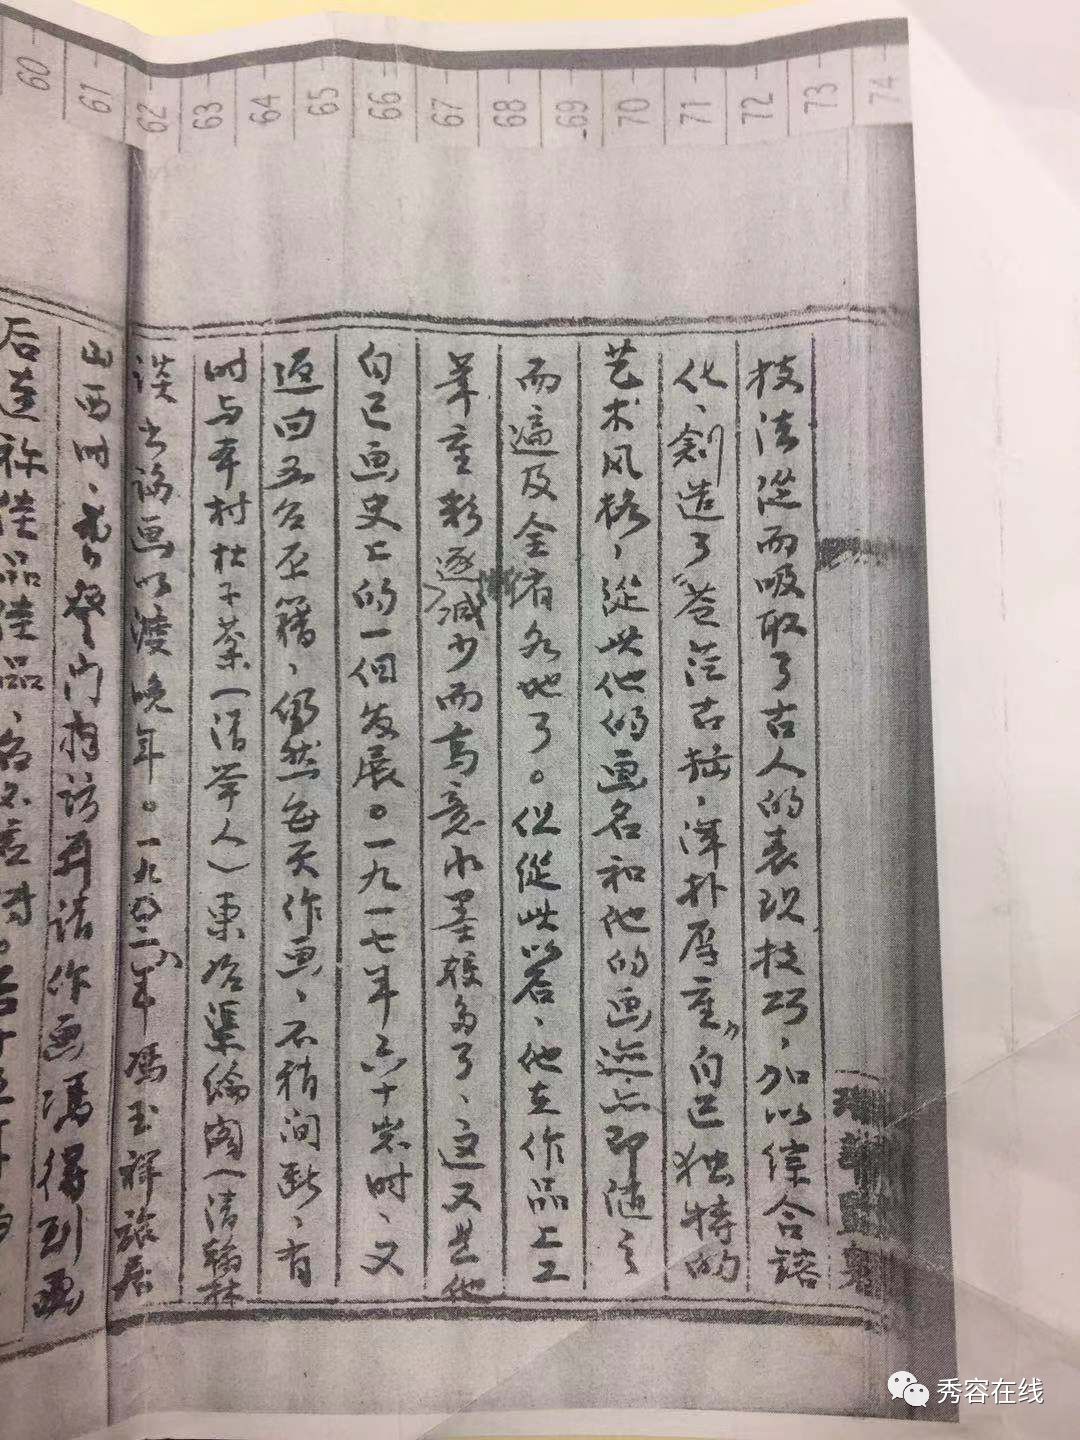 60 61 62 63 64 65 66 67 68 69 70 71 72 73 74
技法从而吸取了古人的表现技巧，加以综合镕
化，创造了“苍茫古拙，浑朴厚重”自己独特的
艺术风格，从此他的画名和他的画迹亦即随之
而遍及全省各地了。但从此以后，他在作品上工
笔重彩逐减少而写意水墨较多了，这又是他
自己画史上的一个发展。一九一七年六十岁时，又
返回五台原籍，仍然每天作画，不稍间断，有
时与本村杜子荣（清举人）东冶渠纶阁（清翰林
谈书论画以渡晚年。一九年冯玉祥旅居
山西时，曾登门拜访并请作画冯得到画
后连称佳品佳品，名不虚传。
秀容在线